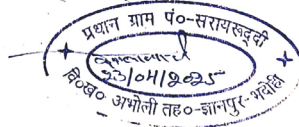 प्रधान ग्राम पं०-सरायरूद्दी
23/04/2025
वि०ख० अभोली तह०-ज्ञानपुर-भदोही